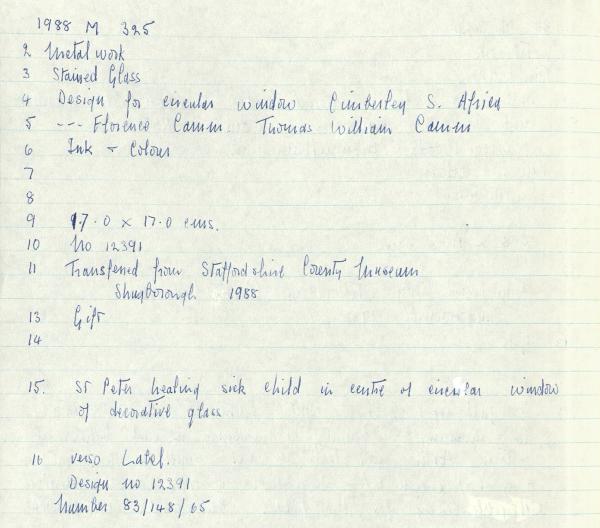 1988 M 325
2 Metal work
3 Stained Glass
4 Design for circular window Cimberley S. Africa
5 --- Florence Camm Thomas William Camm
6 Ink + Colour
7
8
9 17.0 x 17.0 cms.
10 No 12391
11 Transferred from Staffordshire County Museum
Shugborough 1988
13 Gift
14
15. St Peter healing sick child in centre of circular window
of decorative glass
16 verso Label.
Design no 12391
Number 83/148/65